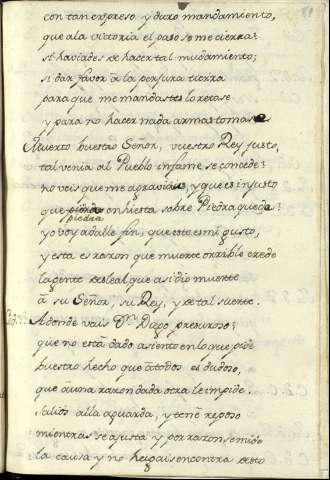 con tan expreso y duro mandamiento,
que a la victoria el paso se me cierra:
si haviades de hacer tal mudamiento;
si dar favor a la perjura tierra
para que me mandastes lo retase
y para no hacer nada armas tomase
Muerto buestro Señor, vuestro Rey justo,
tal venia al Pueblo infame se concede:
no veis que me agraviáis, y que es injusto
que piedra enhiesta sobre Piedra quede:
piedra
yo voy a dalle fin, que este es mi gusto,
y esta es razon que muerte orrible erede
la gente desleal que asi dio muerte
a su Señor, su Rey, y de tal suerte.
Adonde vais Dn. Diego presuroso;
que no está dado asiento en lo que pide
buestro hecho que a todos es dudoso,
que a una razon dada otra le impide.
Salios alla aguarda, y tené reposo
mientras se ajusta y por razon se mide
la causa y no hagais encontra desto